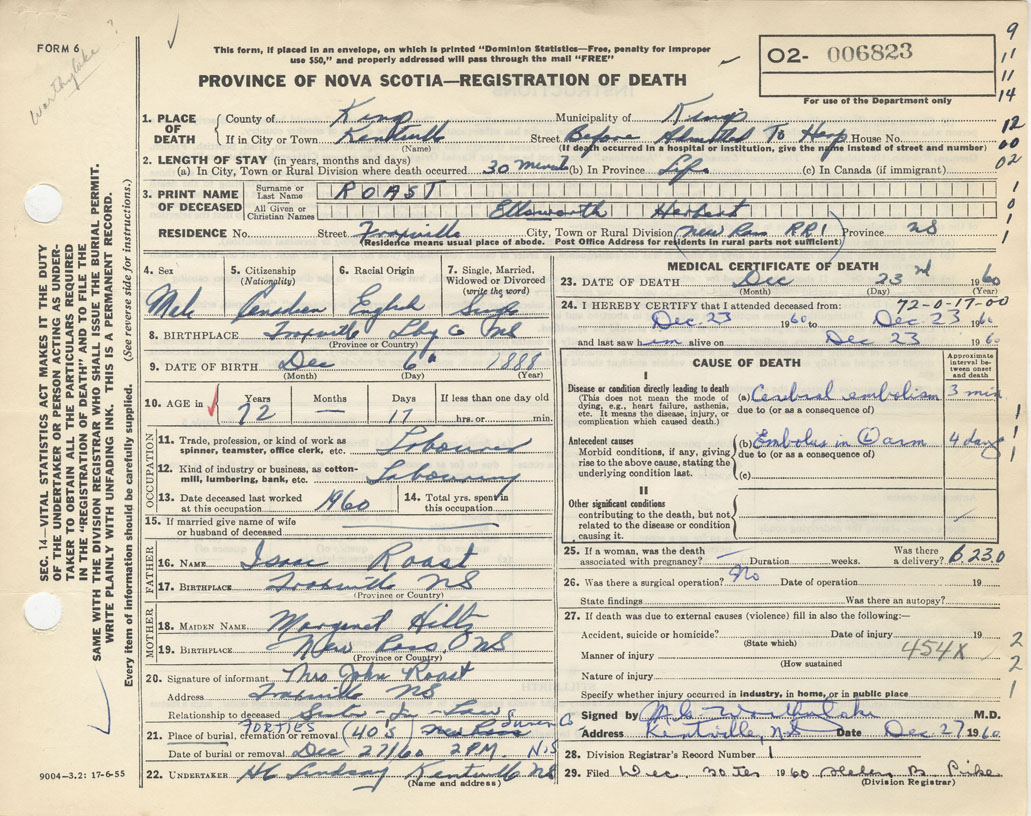 FORM 6
Worthylake ?
This form, if placed in an envelope, on which is printed "Dominion Statistics—Free, penalty for improper
use $50," and properly addressed will pass through the mail "FREE"
PROVINCE OF NOVA SCOTIA—REGISTRATION OF DEATH
O2- 006823
For use of the Department only
9
11
11
14
12
00
02
1
0
1
1
1. PLACE OF DEATH
County of Kings
Municipality of Kings
If in City or Town Kentville Street Before Admitted To Hosp House No.
(Name) (If death occurred in a hospital or institution, give the name instead of street and number)
2. LENGTH OF STAY (in years, months and days)
(a) In City, Town or Rural Division where death occurred 30 minutes (b) In Province Life (c) In Canada (if immigrant)
3. PRINT NAME OF DECEASED
Surname or Last Name ROAST
All Given or Christian Names Ellsworth Herbert
RESIDENCE No. Street Forpville City, Town or Rural Division (New Ross RR1) Province NS
(Residence means usual place of abode. Post Office Address for residents in rural parts not sufficient)
4. Sex
Male
5. Citizenship
(Nationality)
Canadian
6. Racial Origin
English
7. Single, Married,
Widowed or Divorced
(write the word)
Single
8. BIRTHPLACE Lbg Co NS
(Province or Country)
9. DATE OF BIRTH Dec 6th 1888
(Month) (Day) (Year)
10. AGE in
Years Months Days If less than one day old
72 — 17 hrs. or min.
OCCUPATION
11. Trade, profession, or kind of work as
spinner, teamster, office clerk, etc. Labourer
12. Kind of industry or business, as cotton-
mill, lumbering, bank, etc. Labouring
13. Date deceased last worked
at this occupation 1960
14. Total yrs. spent in
this occupation
15. If married give name of wife
or husband of deceased
FATHER
16. NAME Isaac Roast
17. BIRTHPLACE NS
(Province or Country)
MOTHER
18. MAIDEN NAME Margaret Hiltz
19. BIRTHPLACE New Ross, NS
(Province or Country)
20. Signature of informant Mrs John Roast
Address NS
Relationship to deceased Sister-In-Law
21. Place of burial, cremation or removal FORTIES (40'S) New Ross Lunen Co
Date of burial or removal Dec 27/60 2 PM. N.S
22. UNDERTAKER HC Lindsay Kentville NS
(Name and address)
MEDICAL CERTIFICATE OF DEATH
23. DATE OF DEATH Dec 23rd 1960
(Month) (Day) (Year)
24. I HEREBY CERTIFY that I attended deceased from: 72-0-17-00
Dec. 23 1960 to Dec 23 1960
and last saw him alive on Dec 23 1960
CAUSE OF DEATH
Approximate
interval between
onset
and death
I
Disease or condition directly leading to death
(This does not mean the mode of
dying, e.g., heart failure, asthenia,
etc. It means the disease, injury, or
complication which caused death.)
(a) Cerebral embolism 3 min
due to (or as a consequence of)
Antecedent causes
Morbid conditions, if any, giving
rise to the above cause, stating the
underlying condition last.
(b) Embolus in (L) arm 4 days
due to (or as a consequence of)
(c)
1
1
1
II
Other significant conditions
contributing to the death, but not
related to the disease or condition
causing it.
25. If a woman, was the death
associated with pregnancy? — Duration weeks. Was there
a delivery? 6230
26. Was there a surgical operation? No Date of operation 19
State findings Was there an autopsy?
27. If death was due to external causes (violence) fill in also the following:—
Accident, suicide or homicide? Date of injury 19
(State which)
Manner of injury 454X
(How sustained)
Nature of injury
Specify whether injury occurred in industry, in home, or in public place
2
2
1
Signed by M.D.
Address Kentville, N.S Date Dec 27 1960
28. Division Registrar's Record Number 1
29. Filed Dec. 30 1960 Helen B. Pike
(Division Registrar)
SEC. 14—VITAL STATISTICS ACT MAKES IT THE DUTY
OF THE UNDERTAKER OR PERSON ACTING AS UNDER-
TAKER TO OBTAIN ALL THE PARTICULARS REQUIRED
IN THE "REGISTRATION OF DEATH" AND TO FILE THE
SAME WITH THE DIVISION REGISTRAR WHO SHALL ISSUE THE BURIAL PERMIT.
WRITE PLAINLY WITH UNFADING INK. THIS IS A PERMANENT RECORD.
Every item of information should be carefully supplied. (See reverse side for instructions.)
9004-3.2: 17-6-55